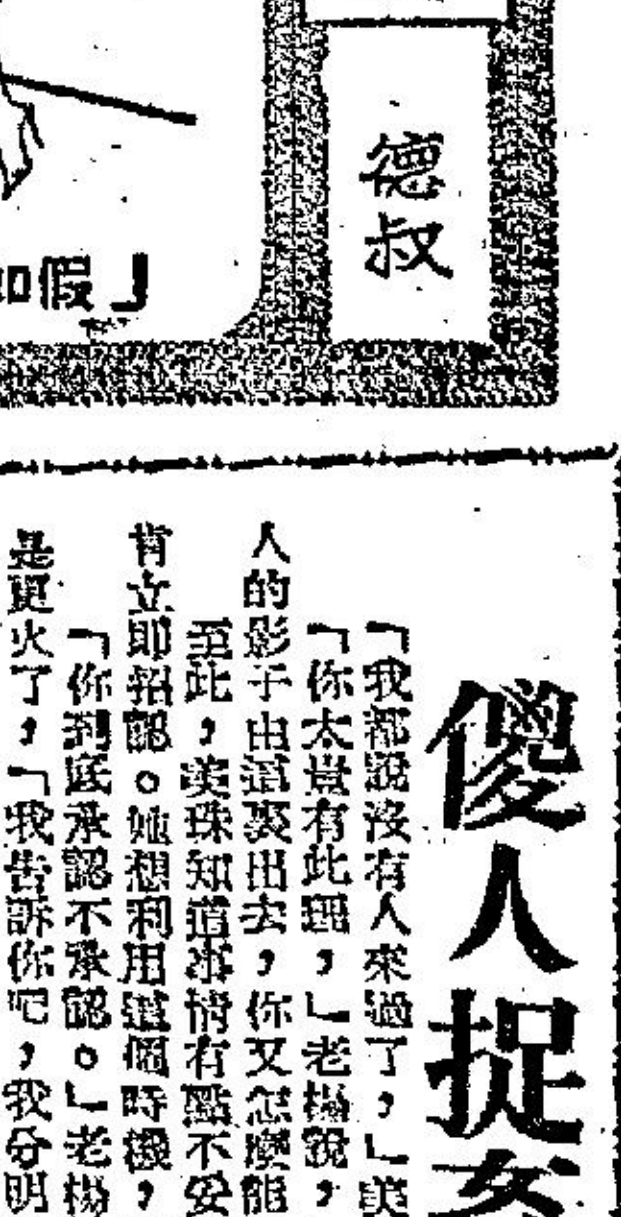 德叔
假」
傻人捉
「我都說沒有人來過了，」美
「你太豈有此理，」老楊說，
人的影子由這裏出去，你又怎麼能
至此，美珠知道事情有點不妥
肯立即招認。她想利用這個時機，
「你到底承認不承認。」老楊
是更火了，「我告訴你吧，我分明